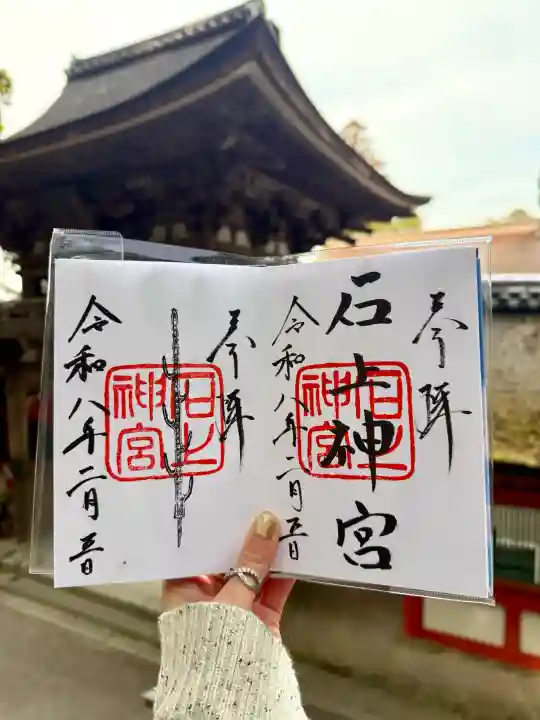 奉拝
石上神宮
石上神宮
令和八年二月五日
奉拝
石上神宮
令和八年二月五日